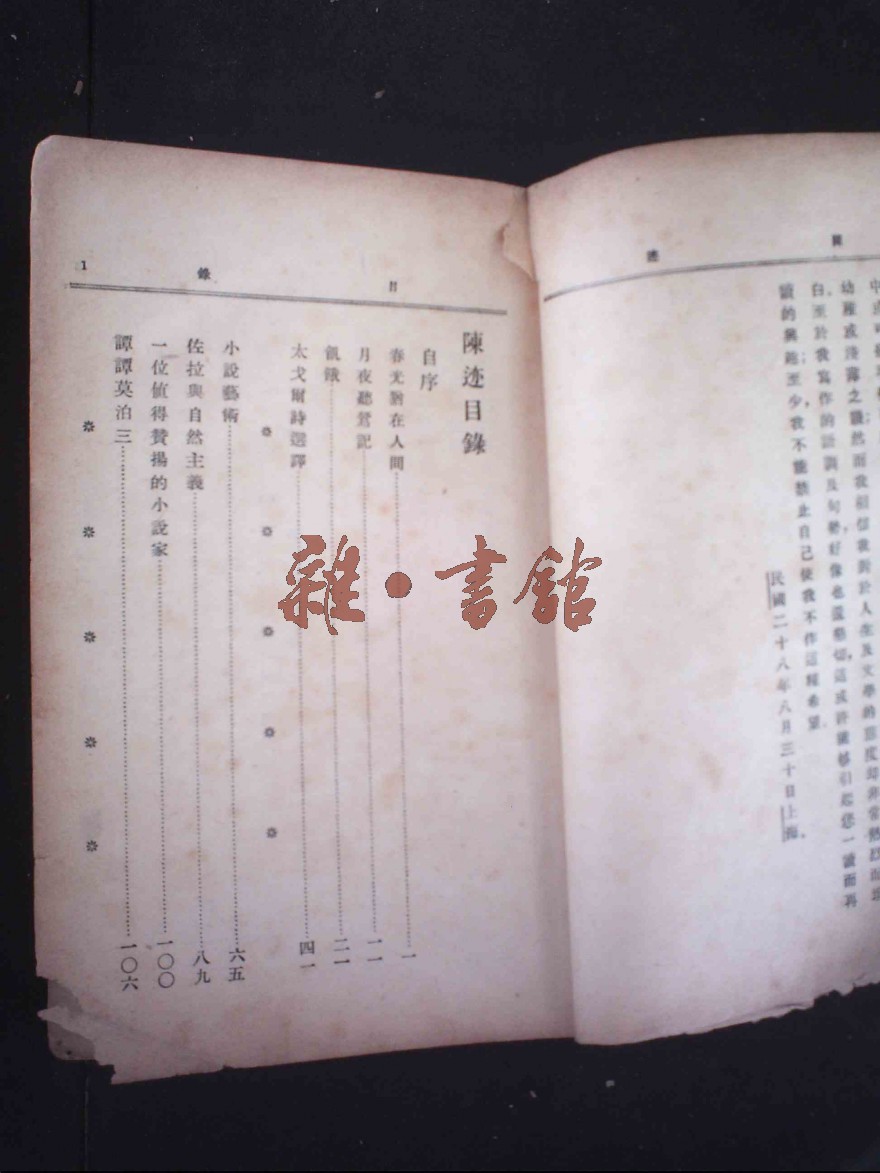 幼稚或淺薄之譏；然而我相信我對於人生及文學的態度却非常熱烈而
白。至於我寫作的 調及句勢好像也還懇切，這或許能够引起您一讀而再
讀的興趣；至少，我不能禁止自己使我不作這種希望。
民國二十八年八月三十日上海。
目錄 1
陳迹目錄
自序
春光猶在人間……一
月夜聽鶯記……一一
飢餓……二一
太戈爾詩選譯……四一
小說藝術……六五
佐拉與自然主義……八九
一位值得贊揚的小說家……一〇〇
譚譚莫泊三……一〇六
雜·書館